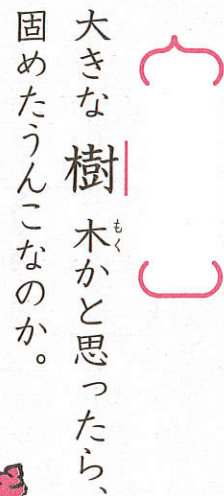 大きな樹木かと思ったら、
固めたうんこなのか。